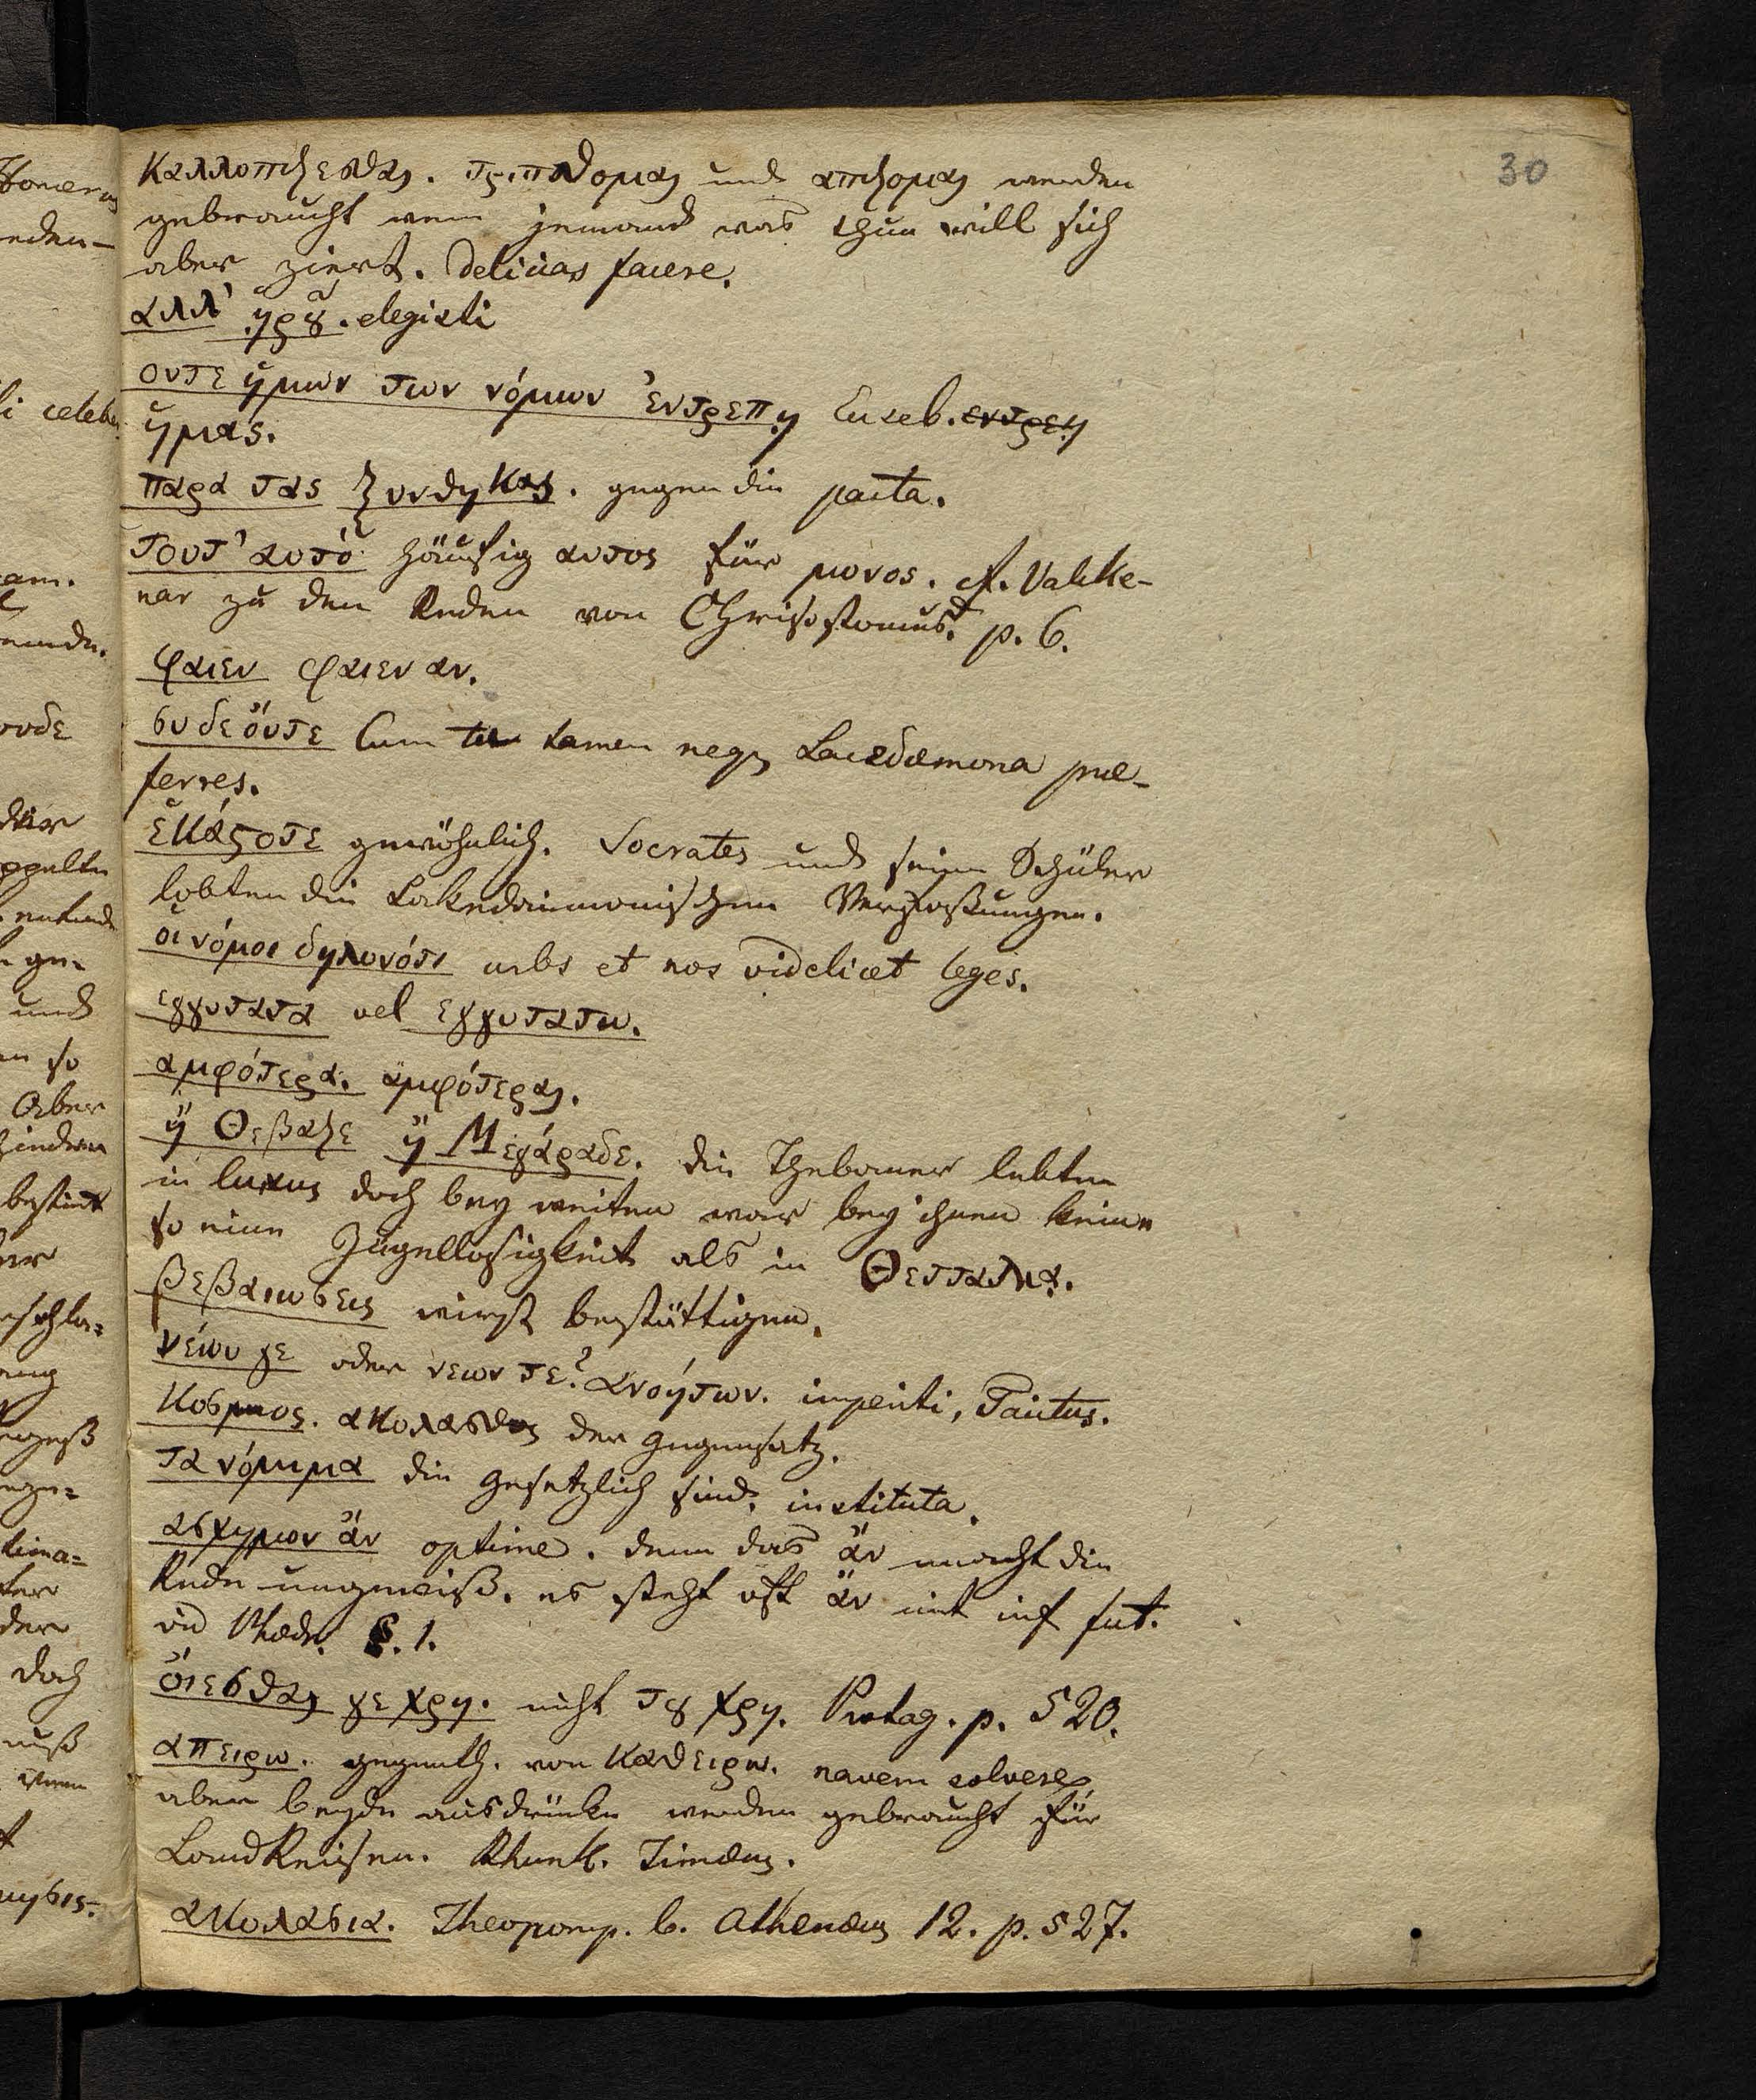 30
καλλοπιζεσθαι. und ακκιζομαι werden
gebraucht wenn jemand was thun will sich
aber ziert. delicias facere.
αλλ' ᾑρȣ. elegisti
ουτε ἡμων των νόμων ἐντρεπῃ Euseb. εντρεπῃ
ἡμας.
παρα τας ξυνθηκας. gegen die pacta.
τουτ' αυτό häufig αυτος für μονος. cf. Valcke-
nar zu den Reden von Chrisostomus. p. 6.
φαιεν φαιεν αν.
συ δε όυτε Cum tu tamen neq Lacedæmona præ-
ferres.
ἑκάϛοτε gewöhnlich. Socrates und seine Schüler
lobten die Lakedaimonischen Verfassungen.
οι νόμοι δηλονότι urbs et nos videlicet leges.
εγγυτατα vel εγγυτατω.
αμφότερα. αμφότεραι.
ἢ Θεβαζε ἢ Μεγάραδε. die Thebaner lebten
in luxus doch bey weiten war bey ihnen keine
so eine Zügellosigkeit als in Θετταλια.
βεβαιωσεις wirst bestättigen.
νέων γε oder νεων τε? ανοήτων. imperiti,
κοσμιος. ακολαστος der Gegensatz.
τα νόμιμα die gesetzlich sind, instituta.
ασχημον ἄν optime. denn das ἄν macht die
Rede ungewiß. es steht oft ἄν mit inf fut.
vid Phædr. §. 1.
ὄιεσθαι γε χρη. nicht τȣ χρη. Protag. p. 520.
απειρω. gegenth. von καθειρω. navem solvere,
aber beyde ausdrücke werden gebraucht für
LandReisen. Rhunk. Timæus.
ακολασια. Theopomp. b. Athenæus 12. p. 527.